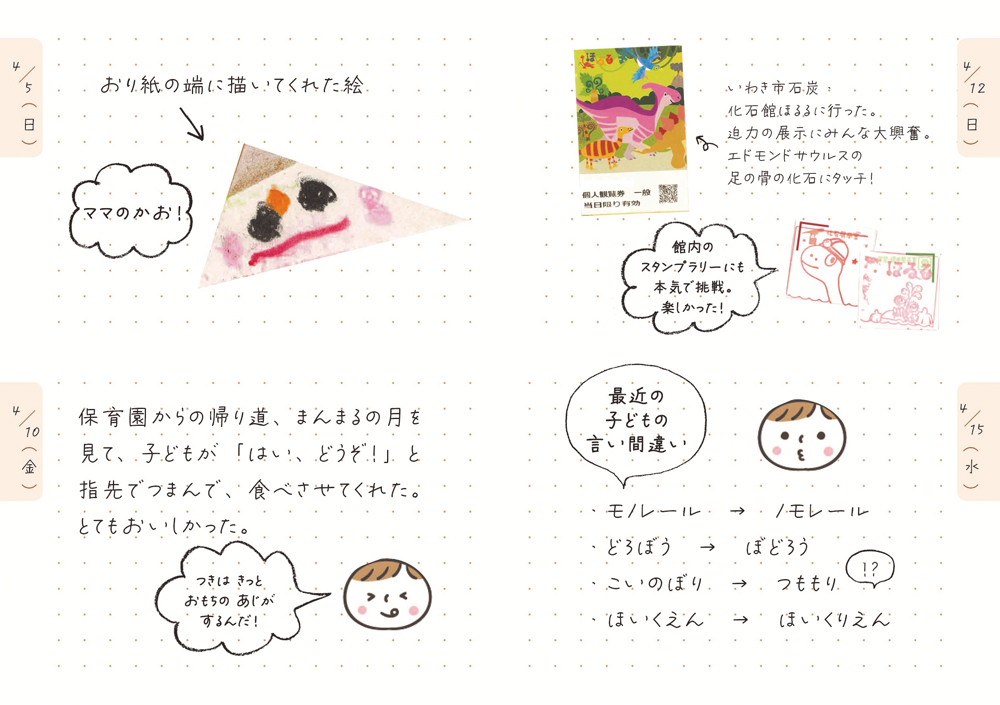 4/5(日)
おり紙の端に描いてくれた絵
ママのかお!
4/10(金)
保育園からの帰り道、まんまるの月を
見て、子どもが「はい、どうぞ!」と
指先でつまんで、食べさせてくれた。
とてもおいしかった。
つきは きっと
おもちの あじが
するんだ!
4/12(日)
ほるる
個人観覧券 一般
当日限り有効
いわき市石炭・
化石館ほるるに行った。
迫力の展示にみんな大興奮。
エドモンドサウルスの
足の骨の化石にタッチ!
館内の
スタンプラリーにも
本気で挑戦。
楽しかった!
ほるる
4/15(水)
最近の
子どもの
言い間違い
・モノレール → ノモレール
・どろぼう → ぼどろう
・こいのぼり → つももり !?
・ほいくえん → ほいくりえん